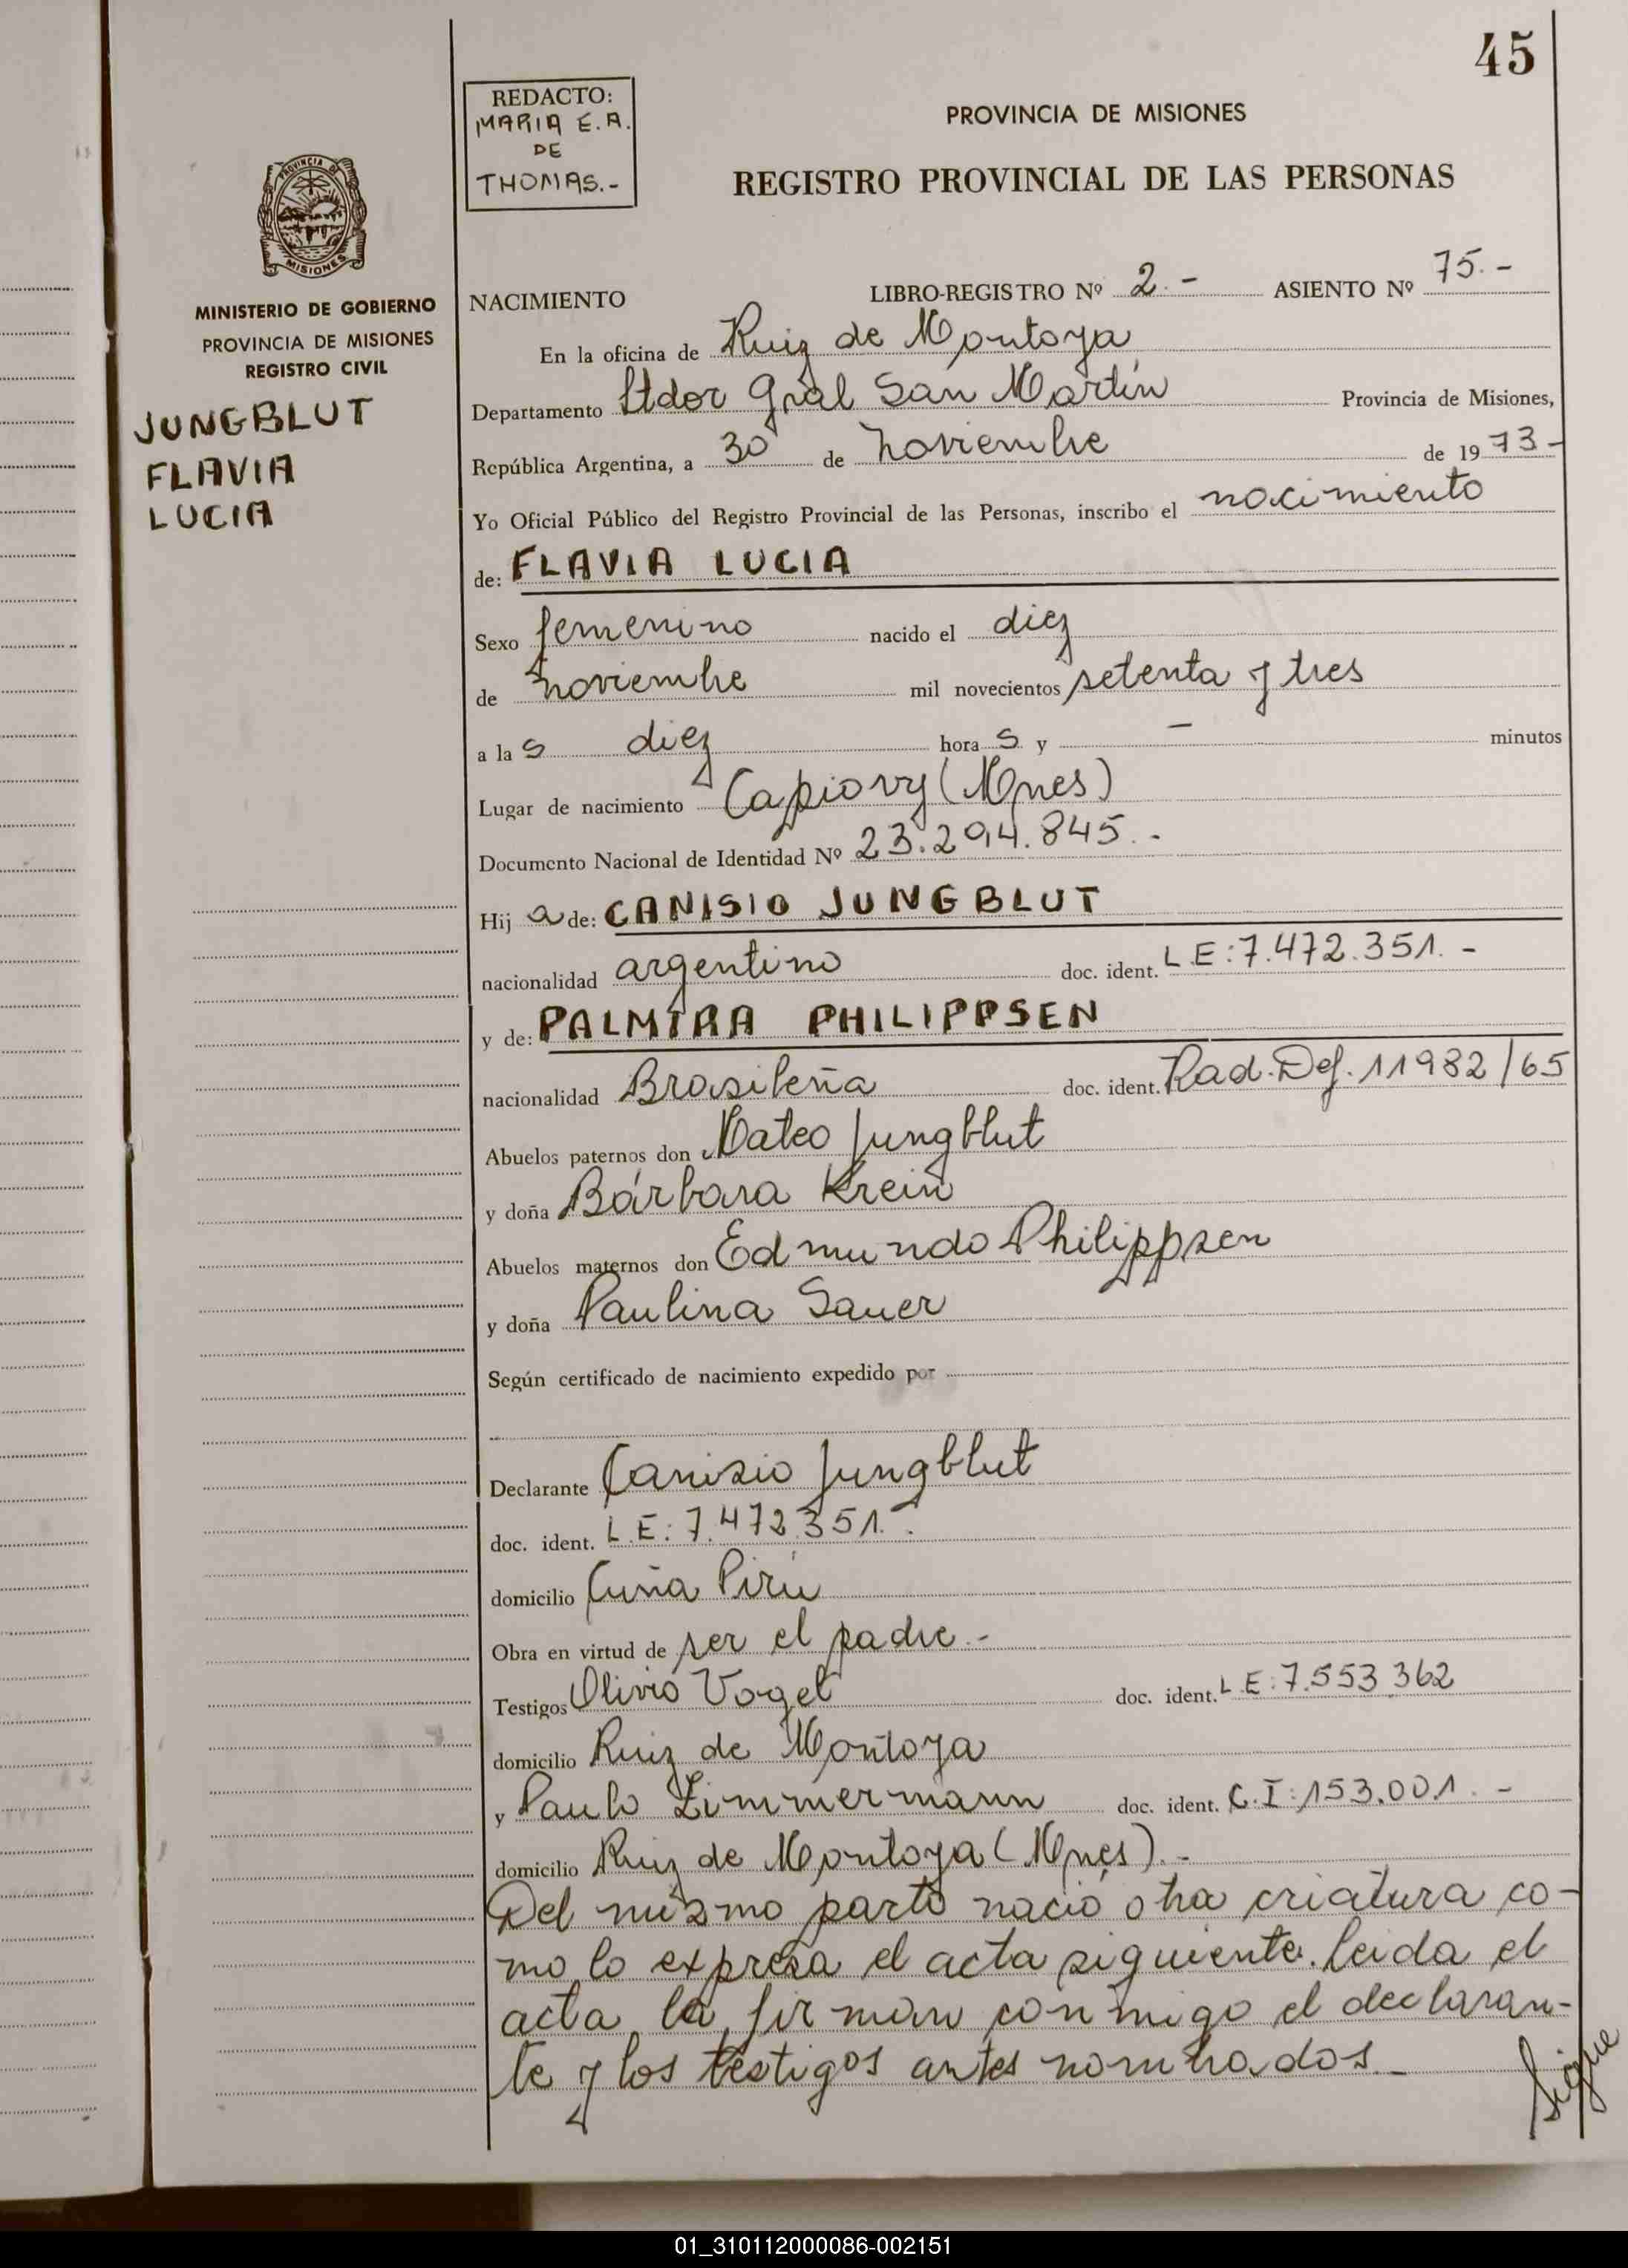 45
REDACTO:
MARIA E.A.
DE
THOMAS.-
PROVINCIA DE MISIONES
REGISTRO PROVINCIAL DE LAS PERSONAS
PROVINCIA DE
MISIONES
MINISTERIO DE GOBIERNO
PROVINCIA DE MISIONES
REGISTRO CIVIL
JUNGBLUT
FLAVIA
LUCIA
NACIMIENTO LIBRO-REGISTRO Nº 2.- ASIENTO Nº 75.-
En la oficina de Ruiz de Montoya
Departamento Ltdor Gral San Martín Provincia de Misiones,
República Argentina, a 30 de noviembre de 1973-
Yo Oficial Público del Registro Provincial de las Personas, inscribo el nacimiento
de: FLAVIA LUCIA
Sexo femenino nacido el diez
de noviembre mil novecientos setenta y tres
a la s diez hora s y - minutos
Lugar de nacimiento Capiovy (Mnes)
Documento Nacional de Identidad Nº 23.294.845.-
Hij a de: CANISIO JUNGBLUT
nacionalidad argentino doc. ident. L.E:7.472.351.-
y de: PALMIRA PHILIPPSEN
nacionalidad Brasileña doc. ident. Rad.Def.11982/65
Abuelos paternos don Mateo Jungblut
y doña Bárbara Krein
Abuelos maternos don Edmundo Philippsen
y doña Paulina Sauer
Según certificado de nacimiento expedido por
Declarante Canisio Jungblut
doc. ident. L.E:7.472.351.-
domicilio Cuña Pirú
Obra en virtud de ser el padre.-
Testigos Olivio Vogel doc. ident. L.E:7.553 362
domicilio Ruiz de Montoya
y Paulo Zimmermann doc. ident. C.I:153.001.-
domicilio Ruiz de Montoya (Mnes).-
Del mismo parto nació otra criatura co-
mo lo expresa el acta siguiente. Leida el
acta la firman conmigo el declaran-
te y los testigos antes nombrados.-
Sigue
01_310112000086-002151